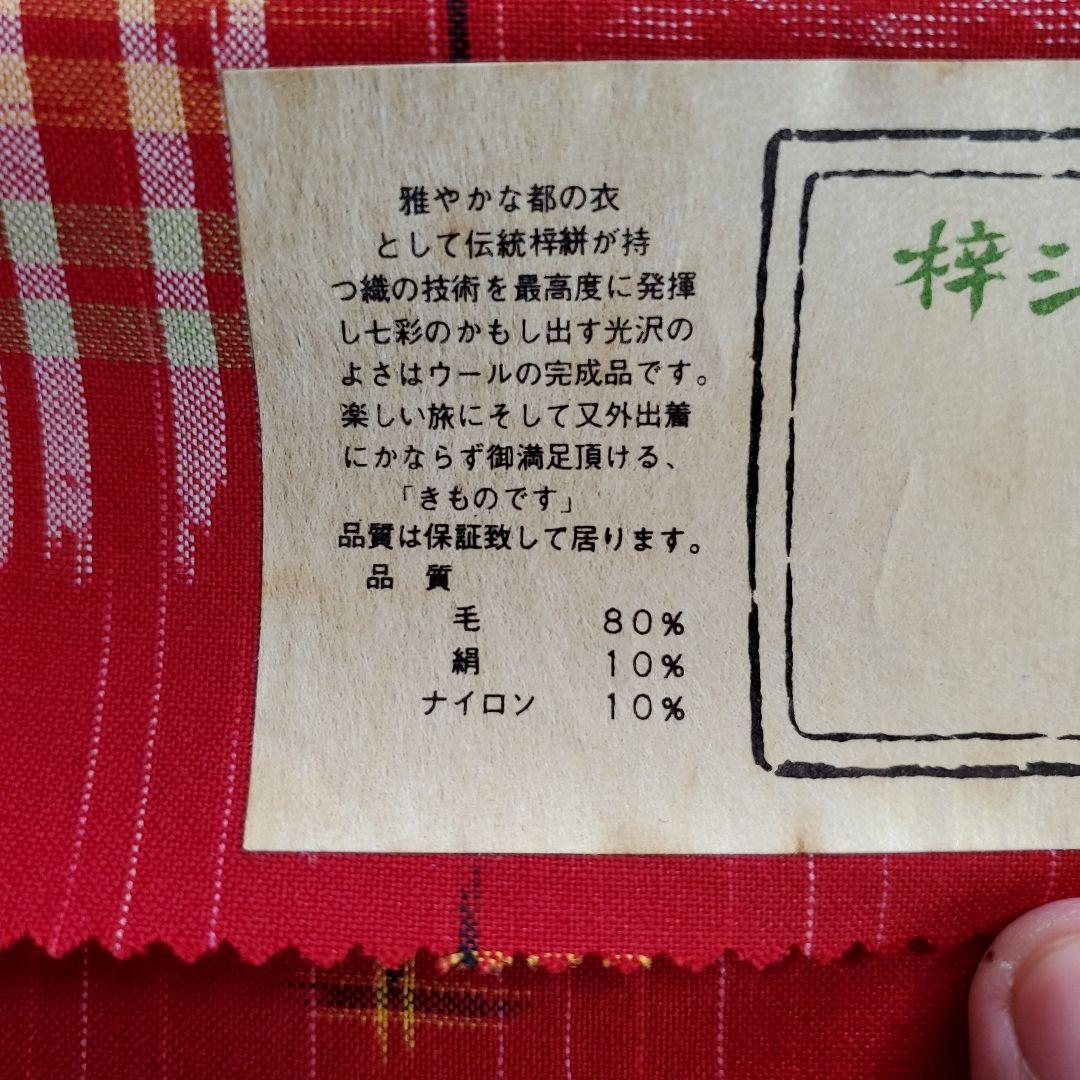 雅やかな都の衣
として伝統梓絣が持
つ織の技術を最高度に発揮
し七彩のかもし出す光沢の
よさはウールの完成品です。
楽しい旅にそして又外出着
にかならず御満足頂ける、
「きものです」
品質は保証致して居ります。
品 質
毛 80%
絹 10%
ナイロン 10%
梓シ